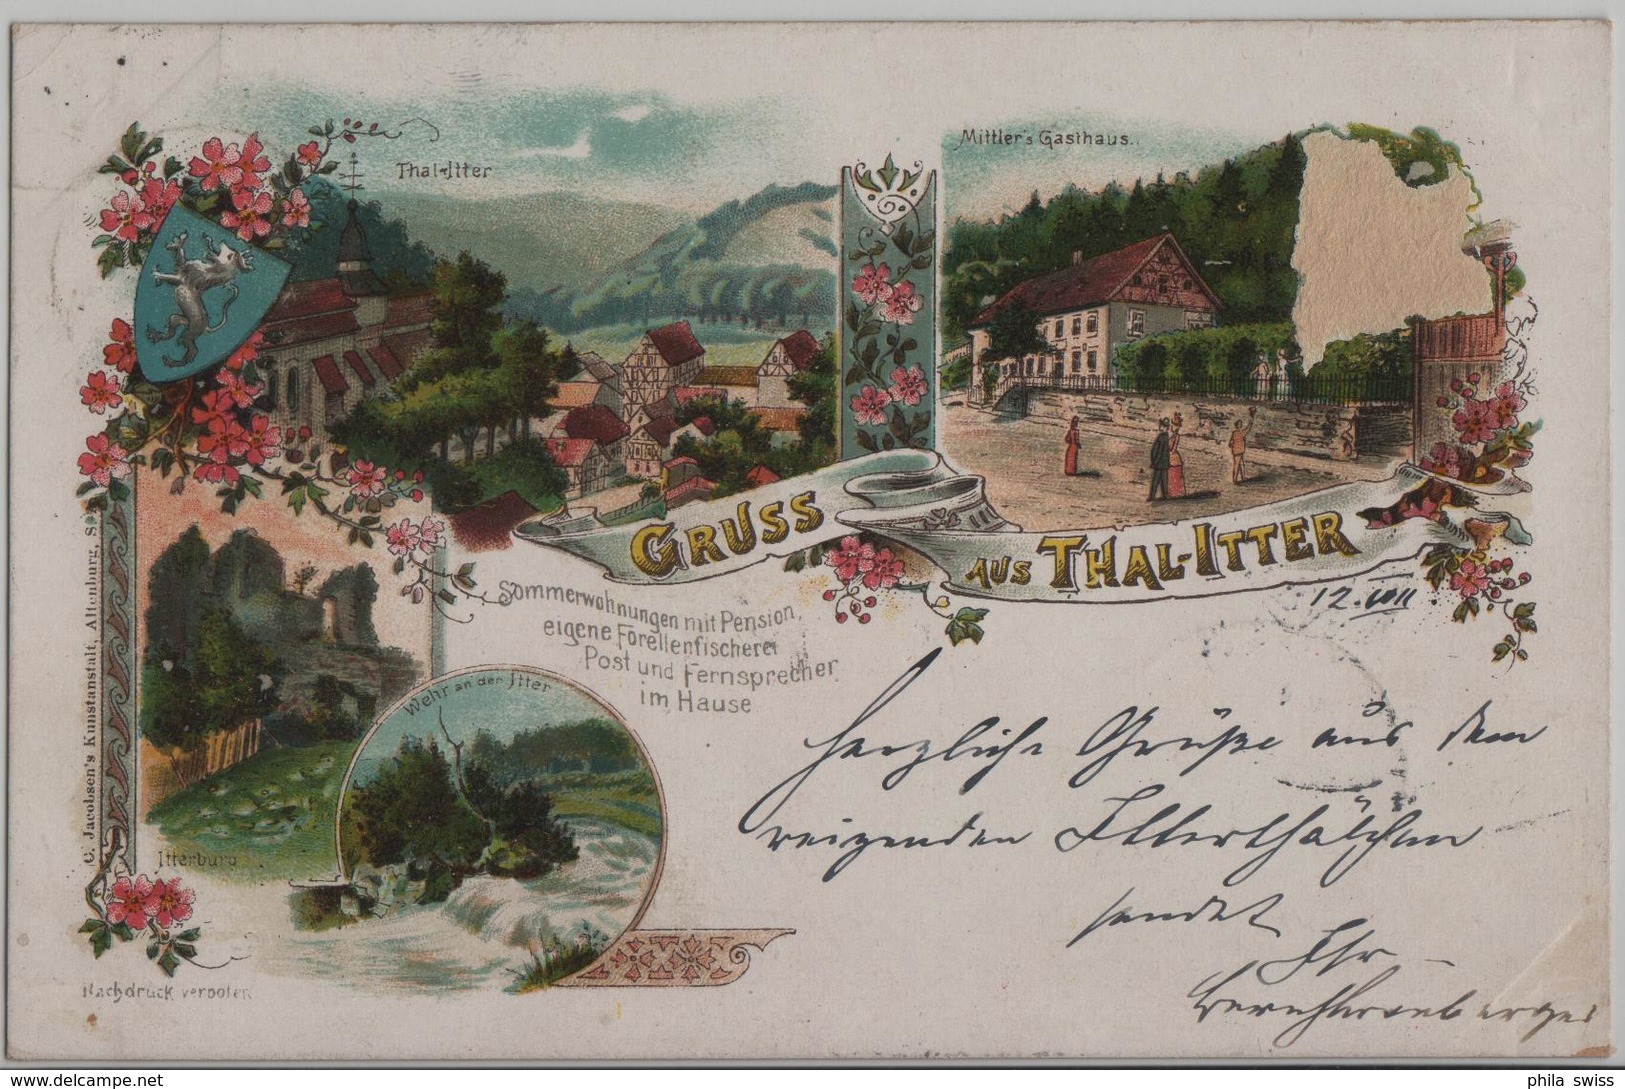 Thal-Itter
Mittler's Gasthaus.
GRUSS
AUS THAL-ITTER
12. VIII
Sommerwohnungen mit Pension,
eigene Forellenfischerei
Post und Fernsprecher
im Hause
Wehr an der Itter
Itterburg
C. Jacobsen's Kunstanstalt, Altenburg, S.-A.
Nachdruck verboten
herzliche Grüße aus dem
reizenden Itterthälchen
sendet
Ihr
© Delcampe
phila_swiss